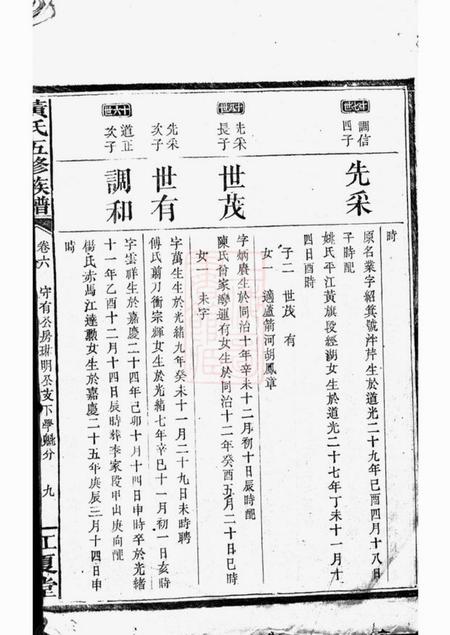 時
十七世
調信
四子
先采
原名業字紹箕號泮芹生於道光二十九年己酉四月十八日
子時配
姚氏平江黃旗段經湖女生於道光二十七年丁未十一月十
四日酉時
子二 世茂 有
女一 適盧箭河胡鳳章
十八世
先采
長子
世茂
字炳賡生於同治十年辛未十二月初十日辰時配
陳氏
運有女生於同治十二年癸酉五月二十日巳時
女 未字
先采
次子
世有
字萬生生於光緒九年癸未十一月二十九日未時聘
傅氏剪刀衝宗輝女生於光緒七年辛巳十一月初一日亥時
十六世
道正
次子
調和
字雲祥生於嘉慶二十四年己卯十月十四日申時卒於光緒
十一年乙酉十二月十四日辰時葬李家段甲山庚向配
楊氏赤馬江達勲女生於嘉慶二十五年庚辰三月十四日申
時
黃氏五修族譜
卷六 守有公房琳明公支下學魁分 九
江夏堂